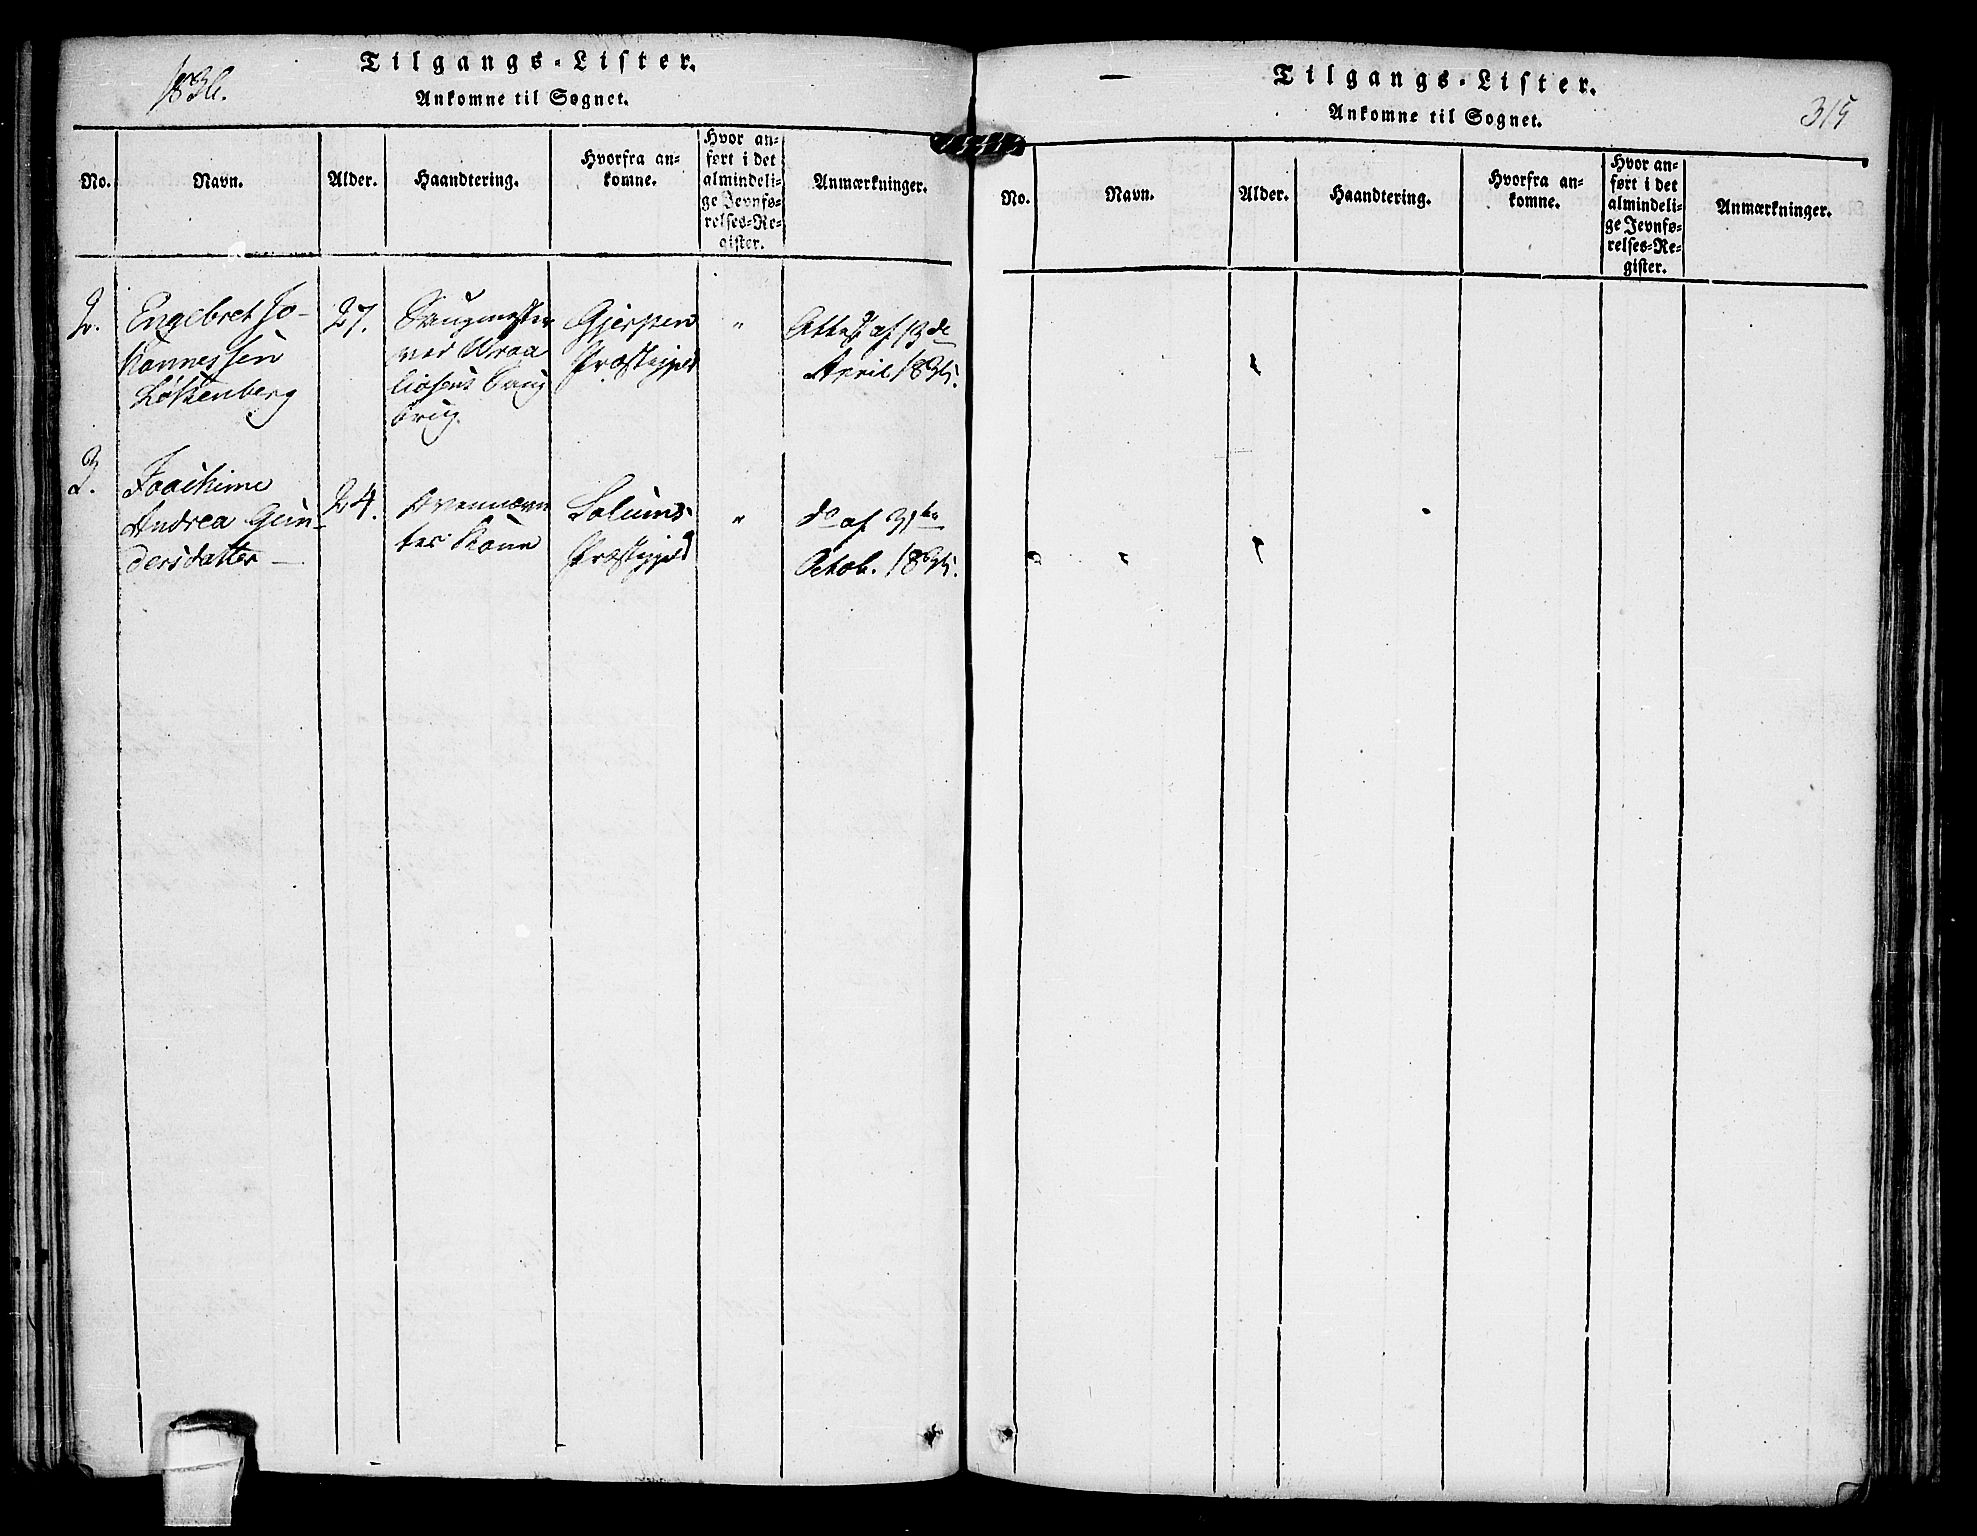 1836.
Tilgangs-Lister.
Ankomne til Sognet.
No.
Navn.
Alder.
Haandtering.
Hvorfra an-
komne.
Hvor an-
ført i det
almindeli-
ge Jevnfø-
relses-Re-
gister.
Anmærkninger.
2.
Engebret Jo-
hannessen
Løkkenberg
27.
Saugmester
ved
Saug
brug.
Gjerpen
Præstegjeld
"
Attest af 13de
April 1835.
3.
Joachime
Andrea Gun-
dersdatter —
24.
Solums
Præstegjeld
"
do af 31te
Octob. 1835.
—
Tilgangs-Lister.
Ankomne til Sognet.
315
No.
Navn.
Alder.
Haandtering.
Hvorfra an-
komne.
Hvor an-
ført i det
almindeli-
ge Jevnfø-
relses-Re-
gister.
Anmærkninger.